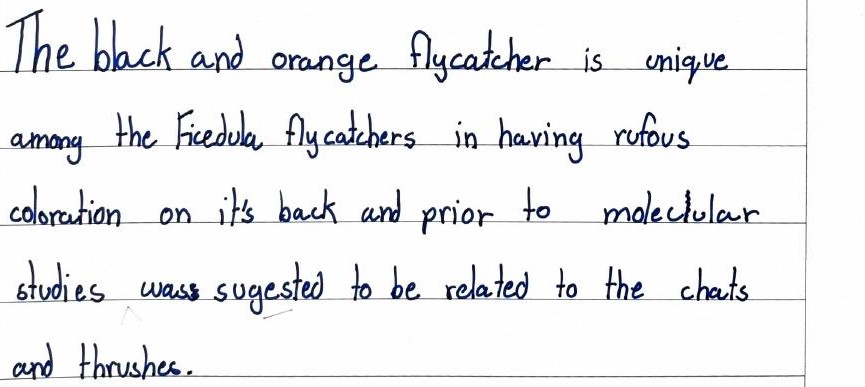 The black and orange flycatcher is unique
among the Ficedula flycatchers in having rufous
coloration on it's back and prior to moleclular
studies wass sugested to be related to the chats
and thrushes.